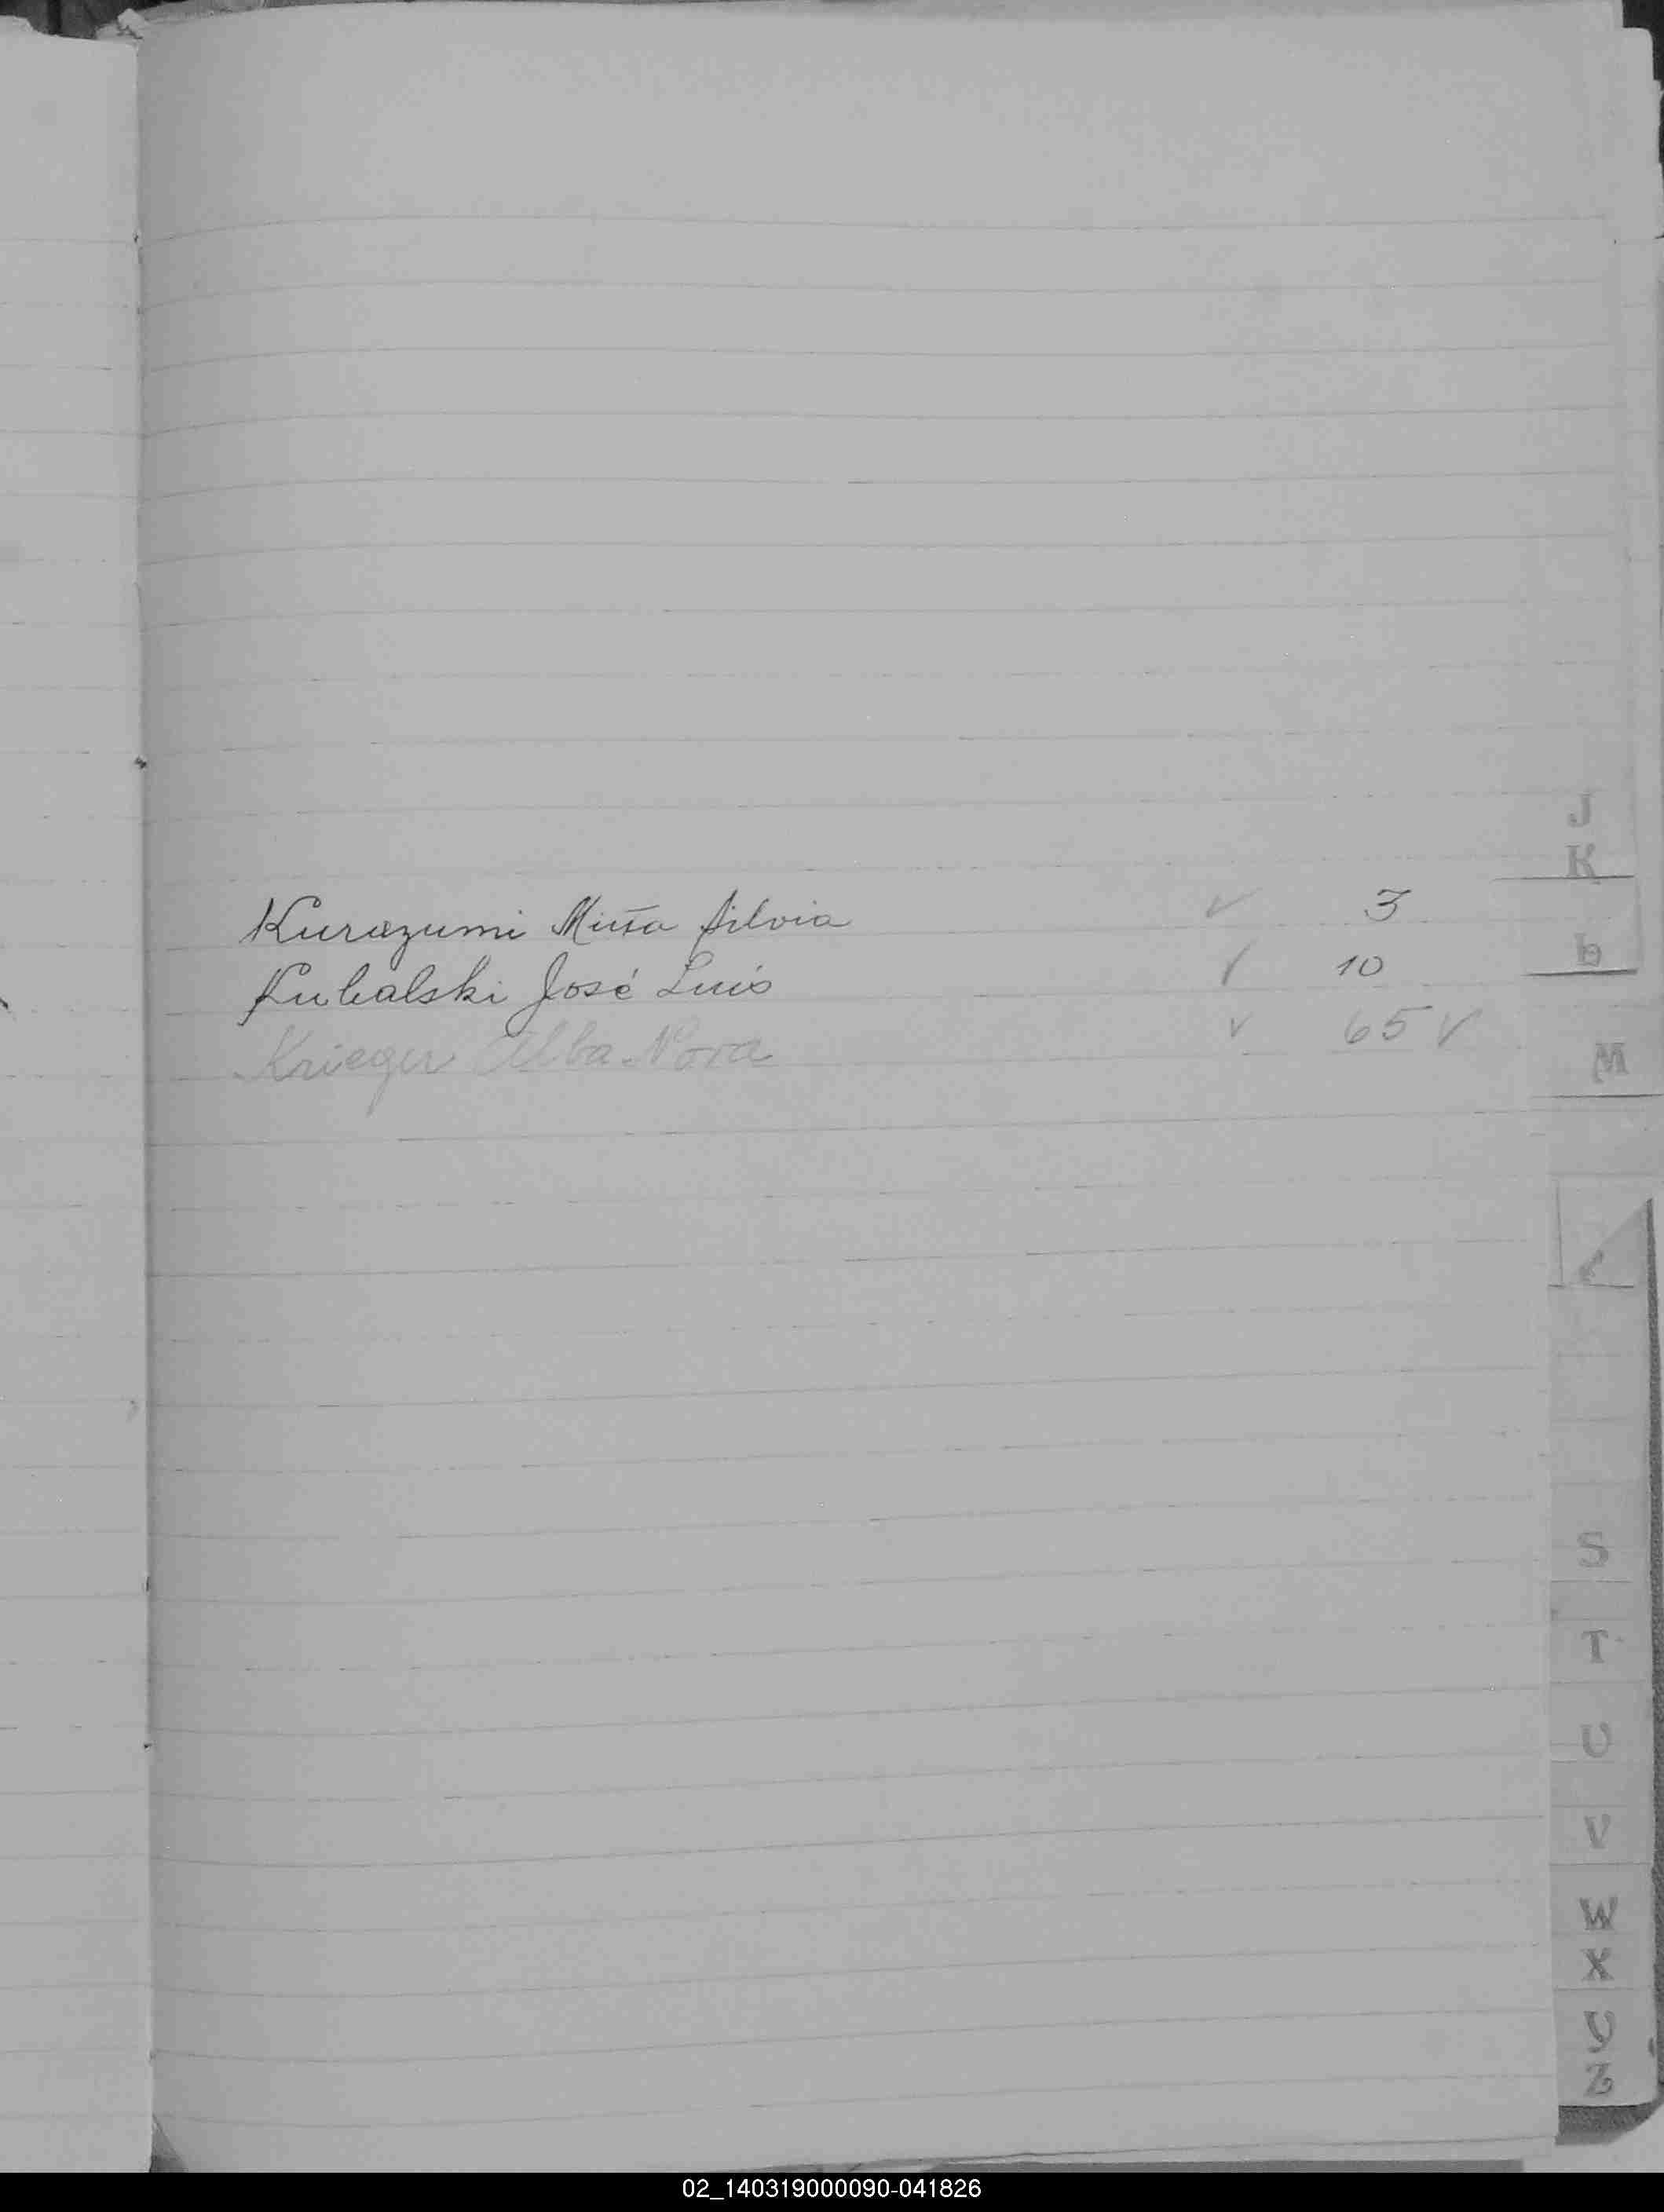 J
K
Kurazumi Mirta Silvia ✓ 3
L
Kubalski José Luis ✓ 10
Krieger Alba Nora ✓ 65 ✓
M
S
T
U
V
W
X
Y
Z
02_140319000090-041826